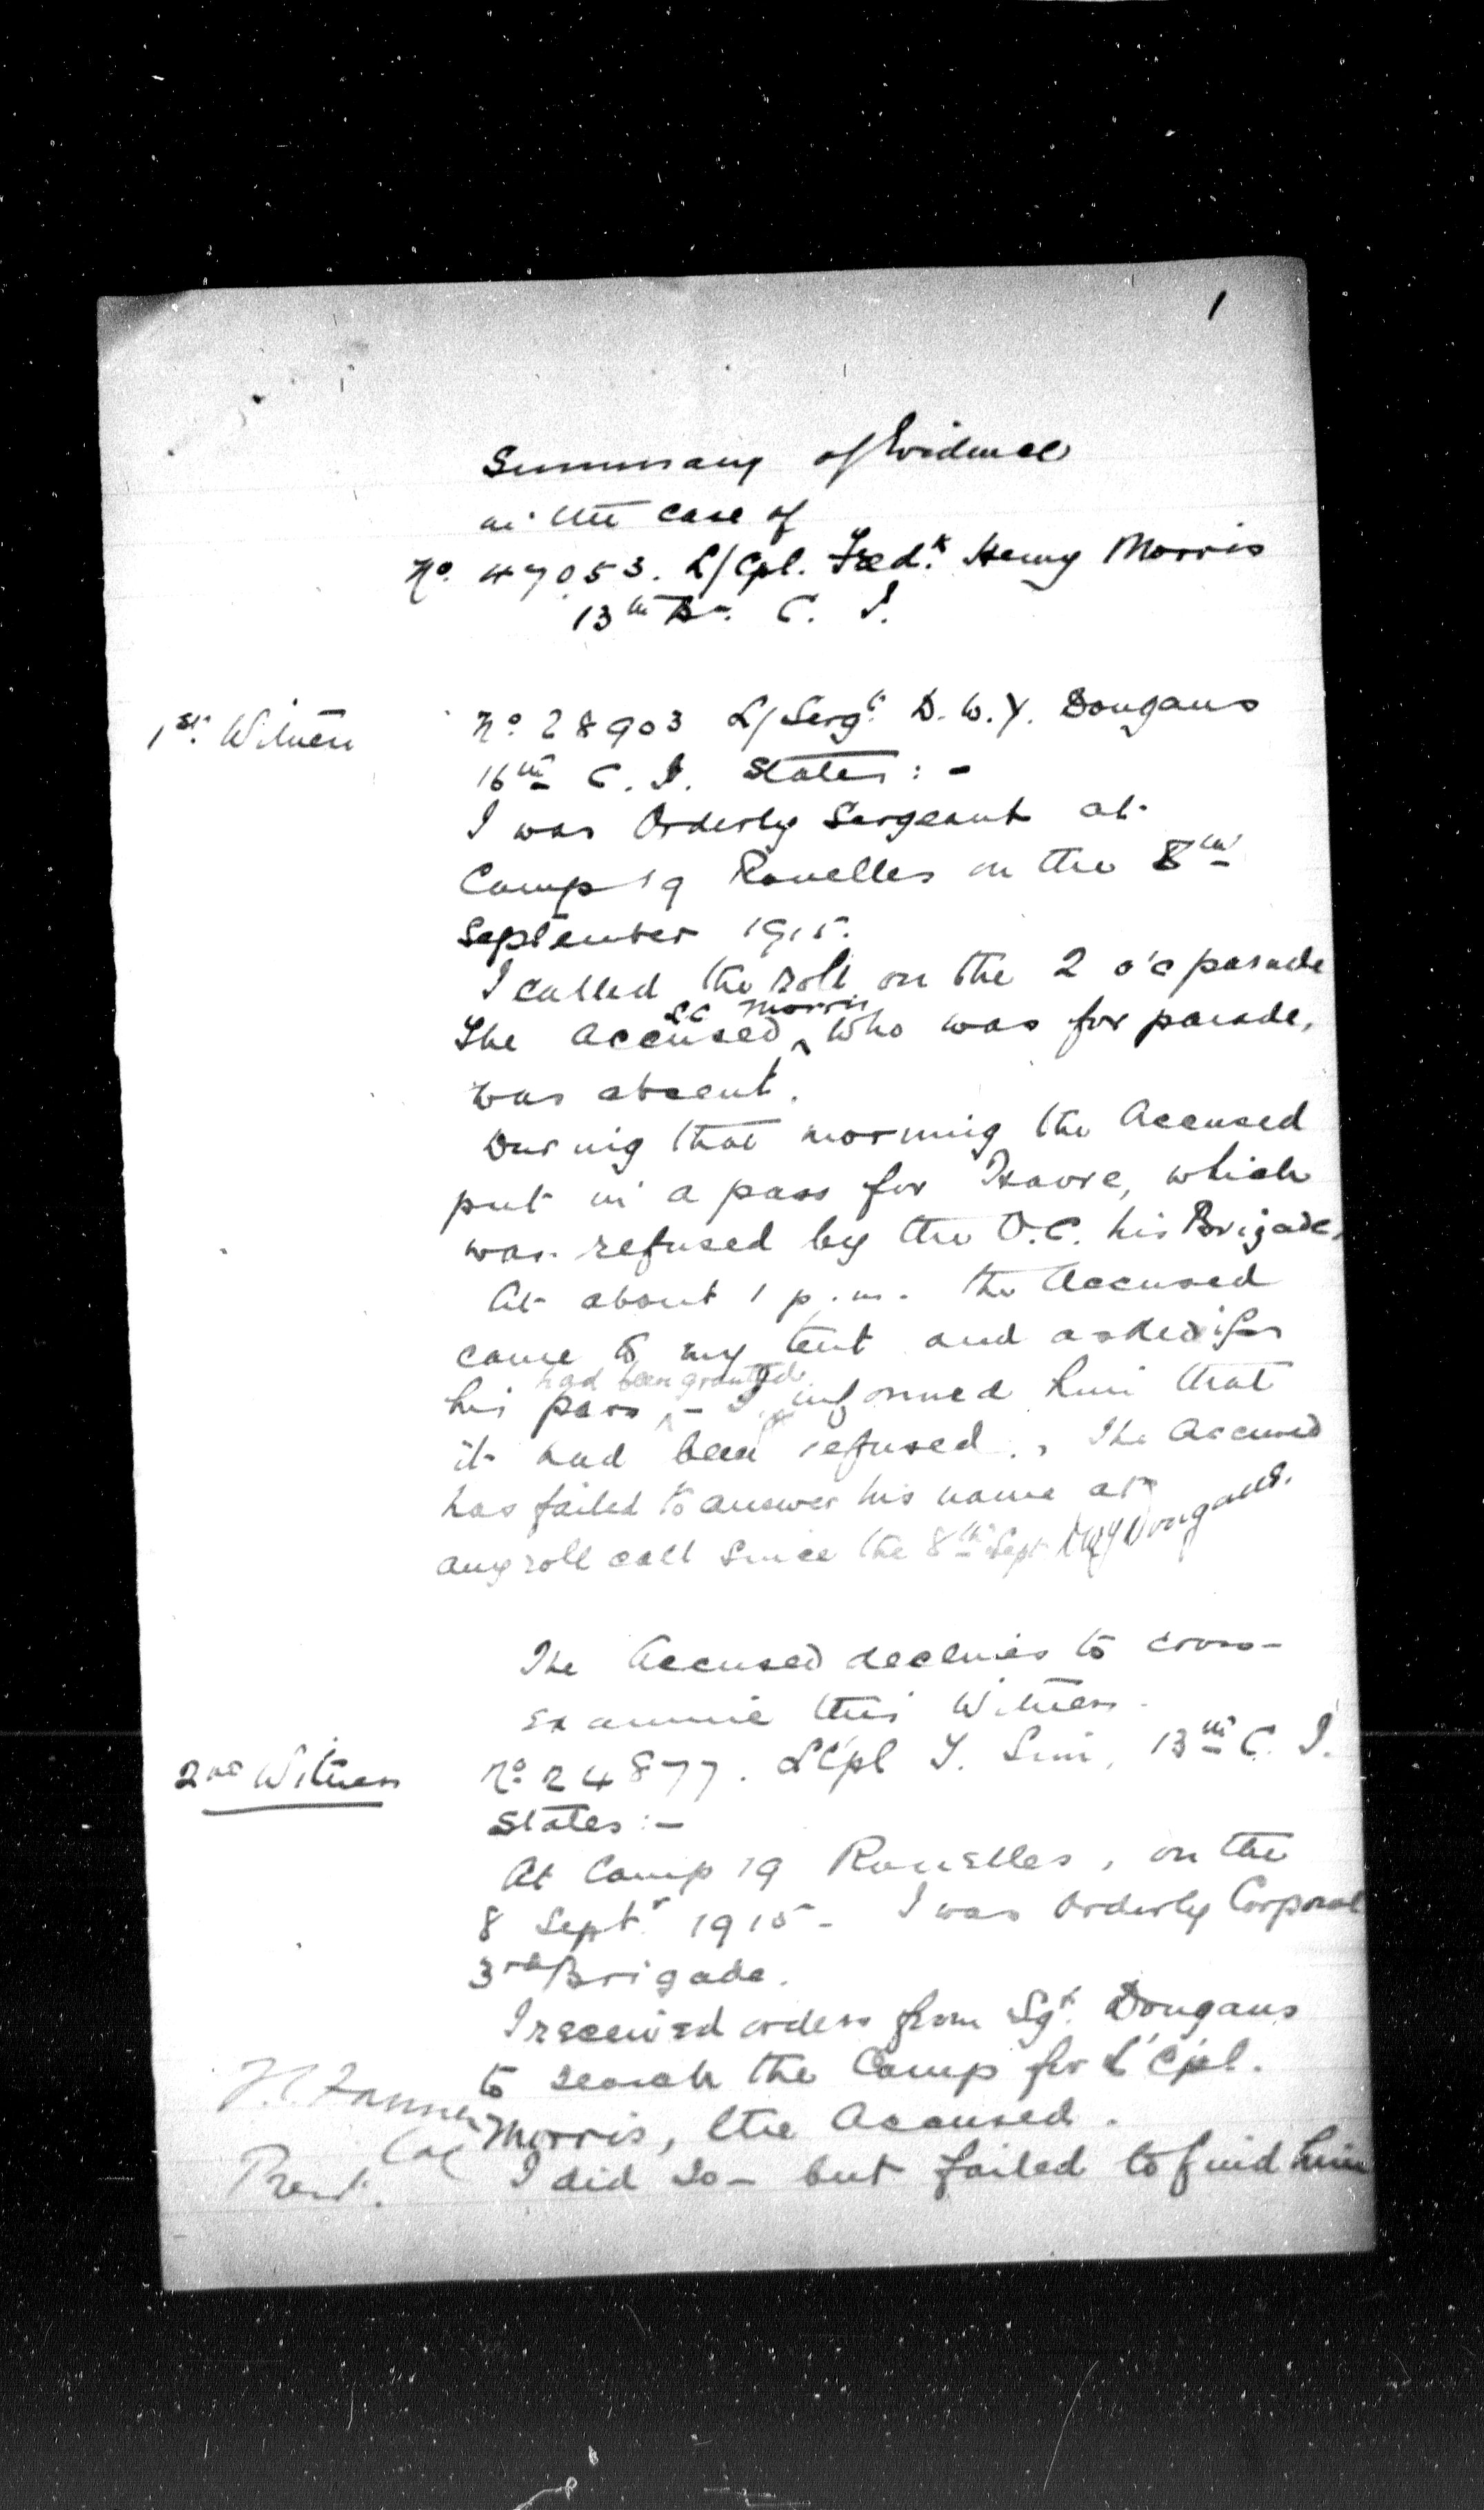 1
Summary of Evidence
in the case of
No. 47053. L/Cpl. Fred.k Henry Morris
13th Bn. C. I.
1st Witness
No 28903 L/Sergt. D. W. Y. Dougans
16th C. I. States : -
I was Orderly Sergeant at
Camp 19 Rouelles on the 8th
September 1915.
I called the roll on the 2 o'c parade
The Accused, LC Morris who was for parade,
was absent.
During that morning the Accused
put in a pass for Havre, which
was refused by the O.C. his Brigade,
At about 1 p.m. the Accused
came to my tent and asked if
his pass had been granted - I informed him that
it had been refused. The Accused
has failed to answer his name at
any roll call since the 8th Sept. DWY Dougans.
The Accused declines to cross-
examine this Witness.
2nd Witness
No 24877. L'Cpl Sim, 13th C. I.
States :-
At Camp 19 Rouelles, on the
8 Septr 1915 - I was Orderly Corporal
3rd Brigade.
I received orders from Sgt. Dougans
to search the Camp for L'Cpl.
Morris, the Accused.
I did so - but failed to find him
Col
Prest.